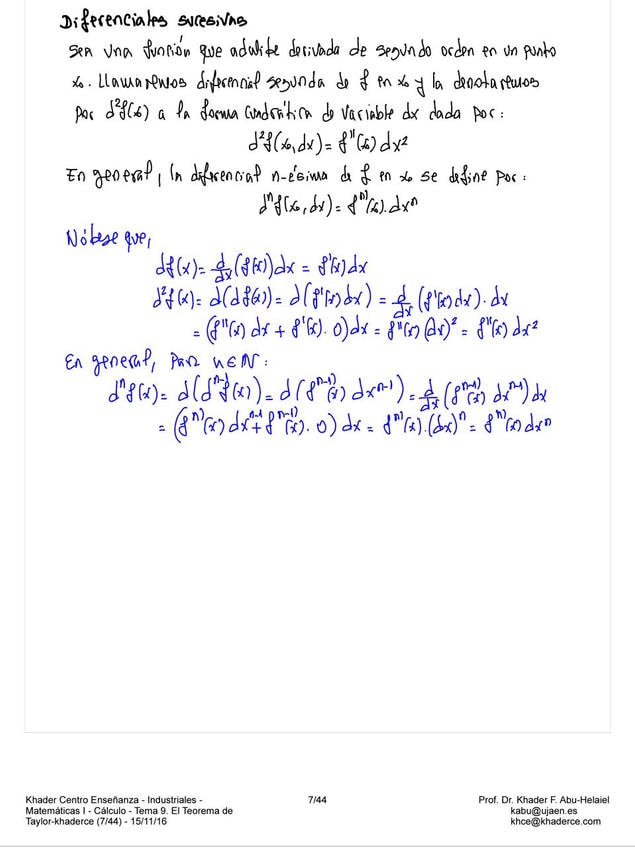 Diferenciales sucesivas
Sea una función que admite derivada de segundo orden en un punto
x₀. Llamaremos diferencial segunda de f en x₀ y la denotaremos
por d²f(x₀) a la forma cuadrática de variable dx dada por:
d²f(x₀,dx)= f''(x₀) dx²
En general, la diferencial n-ésima de f en x₀ se define por:
dⁿf(x₀,dx)= fⁿ⁾(x₀).dxⁿ
Nótese que,
df(x)= d/dx (f(x))dx = f'(x)dx
d²f(x)= d(df(x))= d(f'(x)dx) = d/dx (f'(x)dx).dx
= (f''(x) dx + f'(x). 0)dx = f''(x) (dx)² = f''(x) dx²
En general, para n∈N:
dⁿf(x)= d(dⁿ⁻¹f(x))= d(fⁿ⁻¹⁾(x) dxⁿ⁻¹)= d/dx (fⁿ⁻¹⁾(x) dxⁿ⁻¹)dx
= (fⁿ⁾(x) dxⁿ⁻¹+ fⁿ⁻¹⁾(x). 0) dx = fⁿ⁾(x).(dx)ⁿ = fⁿ⁾(x) dxⁿ
Khader Centro Enseñanza - Industriales -
Matemáticas I - Cálculo - Tema 9. El Teorema de
Taylor-khaderce (7/44) - 15/11/16
7/44
Prof. Dr. Khader F. Abu-Helaiel
kabu@ujaen.es
khce@khaderce.com